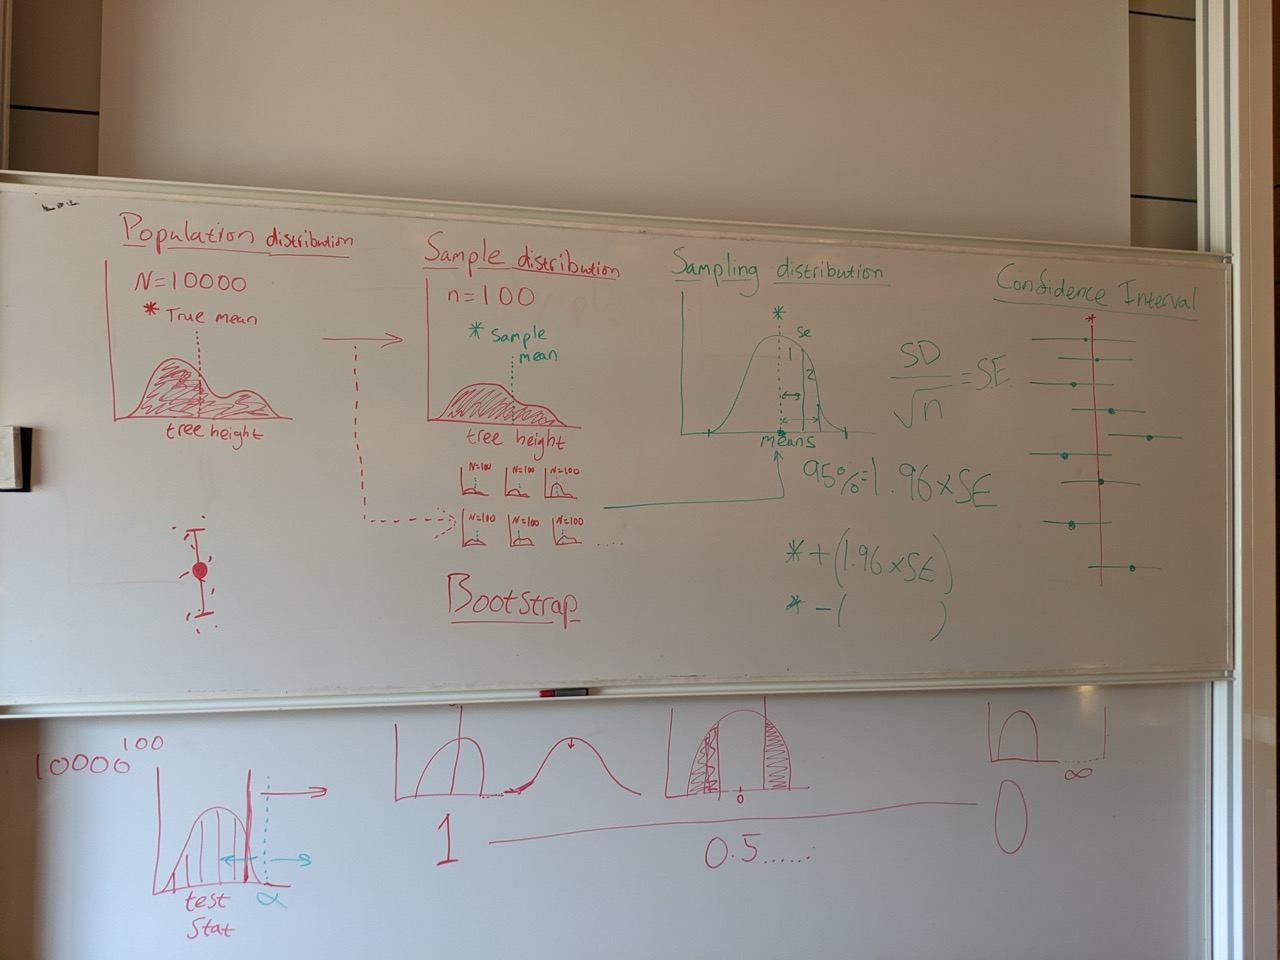 Population distribution
N=10000
* True mean
tree height
Sample distribution
n=100
* Sample
mean
tree height
N=100 N=100 N=100
N=100 N=100 N=100 .....
Bootstrap
Sampling distribution
*
se
1
2
means
SD
√n
=SE
95%=1.96×SE
*+(1.96×SE)
*-( )
Confidence Interval
*
10000^100
test
stat
α
1
0
0.5......
∞
0